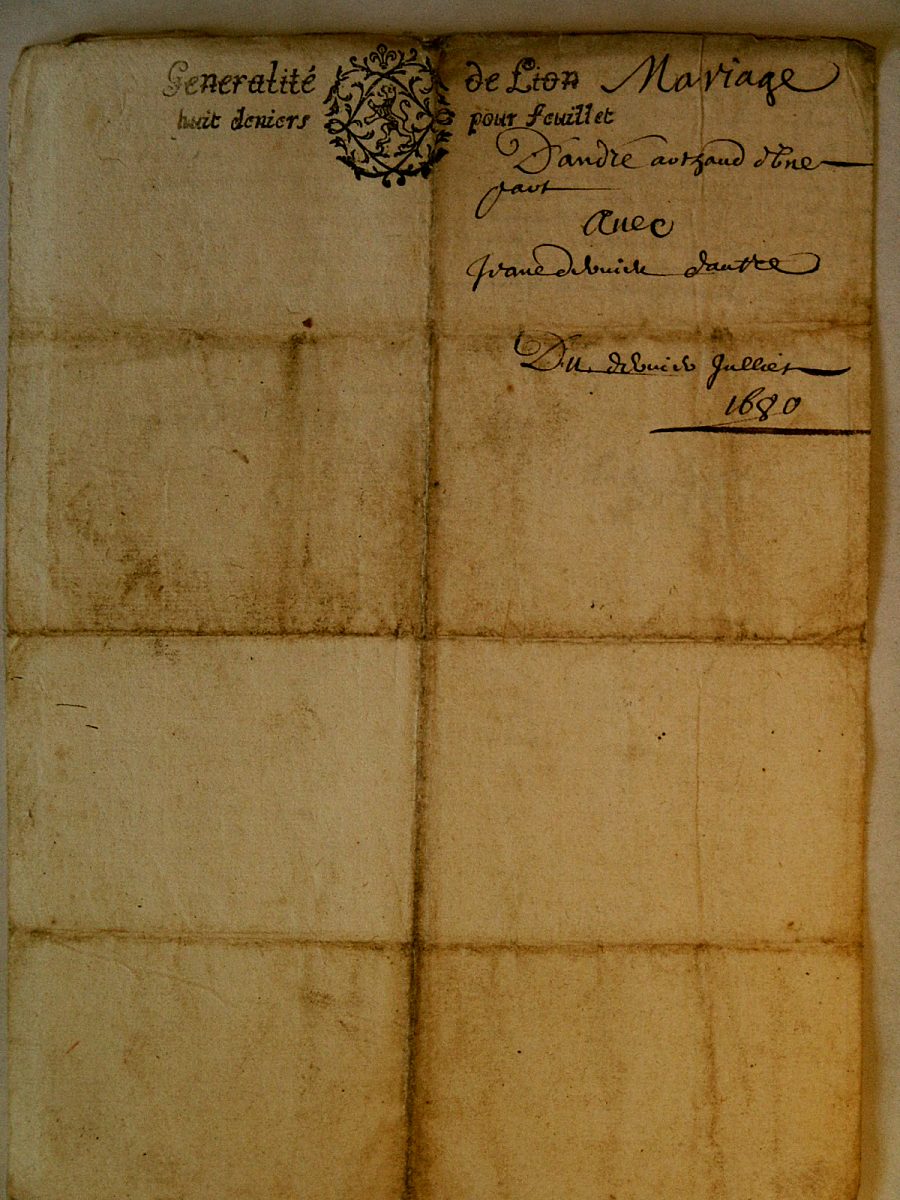 Generalité de Lion Mariage
huit deniers pour feuillet
D'andré arthaud d'Vne
part
Auec
Jeane d'autre
Du dernier Julliet
1680